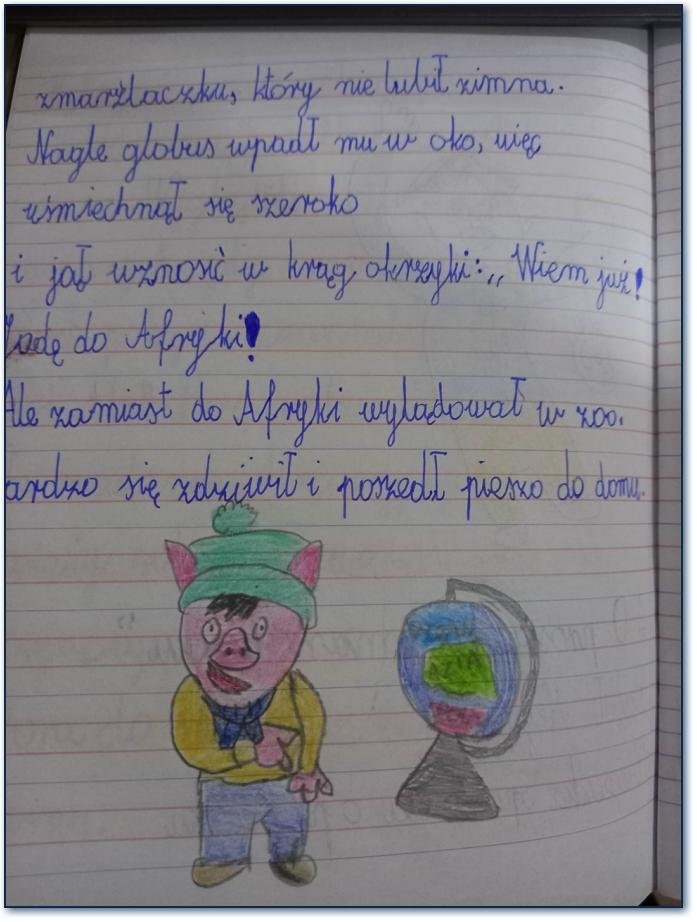 zmarźlaczku, który nie lubił zimna.
Nagle globus wpadł mu w oko, więc
uśmiechnął się szeroko
i jął wznosić w krąg okrzyki: ,, Wiem już!
Jadę do Afryki!
Ale zamiast do Afryki wylądował w zoo.
ardzo się zdziwił i poszedł pieszo do domu.
AZJA